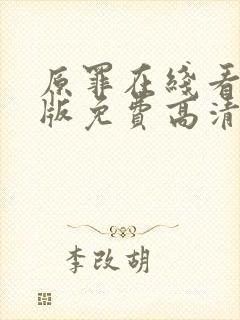 原罪在线看
版免费高清
李改胡